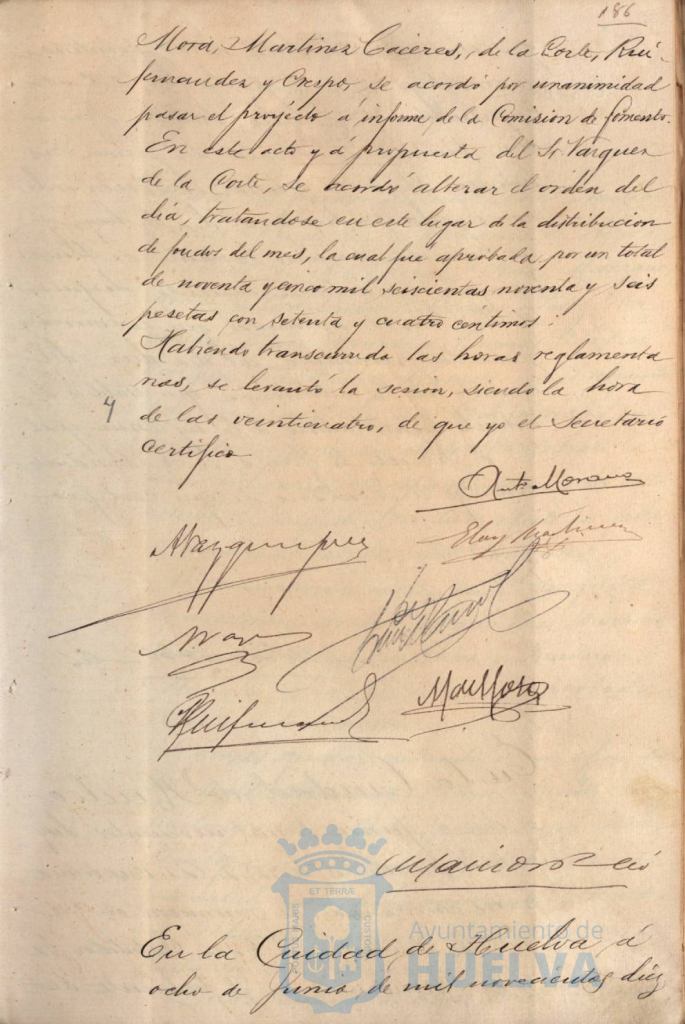 186
Mora, Martinez Caceres, de la Corte, Rui-
fernandez y Crespo, se acordó por unanimidad
pasar el proyecto á informe de la Comision de fomento.
En este acto y á propuesta del Sr. Vazquez
de la Corte, se acordó alterar el orden del
dia, tratandose en este lugar de la distribucion
de fondos del mes, la cual fue aprobada por un total
de noventa y cinco mil seiscientas noventa y seis
pesetas con setenta y cuatro céntimos.
Habiendo transcurrido las horas reglamenta
rias, se levantó la sesion, siendo la hora
4
de las veinticuatro, de que yo el Secretario
certifico
Eloy Martinez
ET TERRÆ
Ayuntamiento de
HUELVA
En la Ciudad de Huelva á
ocho de Junio de mil novecientos diez